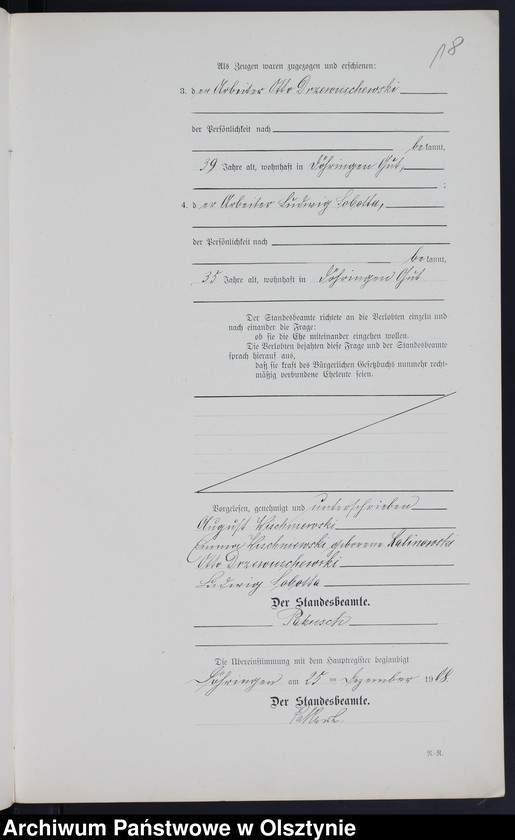 18
Als Zeugen waren zugezogen und erschienen:
3. der Arbeiter Otto Drzewuschewski
der Persönlichkeit nach
bekannt,
39 Jahre alt, wohnhaft in Döhringen Gut,
;
4. der Arbeiter Ludwig Sobotta,
der Persönlichkeit nach
bekannt,
35 Jahre alt, wohnhaft in Döhringen Gut
Der Standesbeamte richtete an die Verlobten einzeln und
nach einander die Frage:
ob sie die Ehe miteinander eingehen wollen.
Die Verlobten bejahten diese Frage und der Standesbeamte
sprach hierauf aus,
daß sie kraft des Bürgerlichen Gesetzbuchs nunmehr recht-
mäßig verbundene Eheleute seien.
Vorgelesen, genehmigt und unterschrieben
August Wischnewski
Wischnewski geborene Kalinowski
Otto Drzewuschewski
Ludwig Sobotta
Der Standesbeamte.
Die Übereinstimmung mit dem Hauptregister beglaubigt
Döhringen am 25 ten Dezember 1908.
Der Standesbeamte.
R.-R.
Archiwum Państwowe w Olsztynie